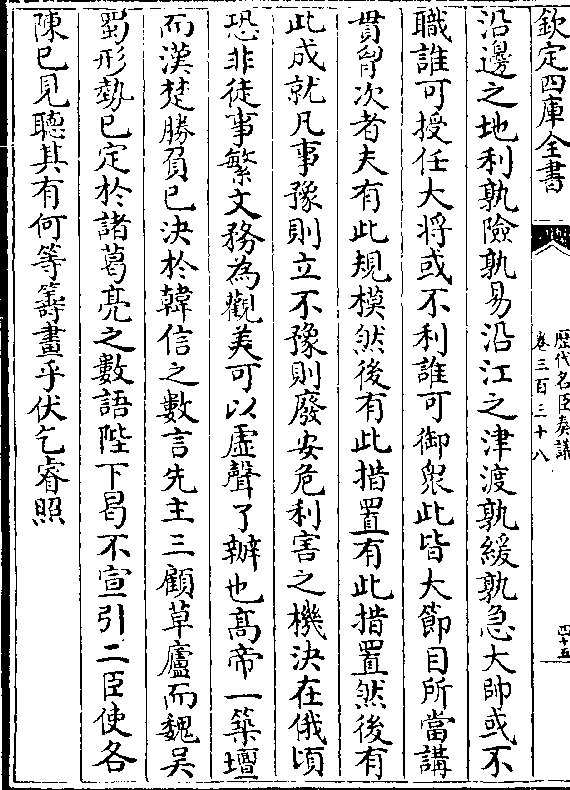 欽定四庫全書
歷代名臣奏議
卷三百三十八
四十五
沿邊之地利孰險孰易沿江之津渡孰緩孰急大帥或不
職誰可授任大将或不利誰可御衆此皆大節目所當講
貫胷次者夫有此規模然後有此措置有此措置然後有
此成就凡事豫則立不豫則廢安危利害之機決在俄頃
恐非徒事繁文務為觀美可以虛聲了辦也髙帝一築壇
而漢楚勝負已決於韓信之數言先主三顧草廬而魏吳
蜀形勢已定於諸葛亮之數語陛下曷不宣引二臣使各
陳已見聽其有何等籌畫乎伏乞睿照